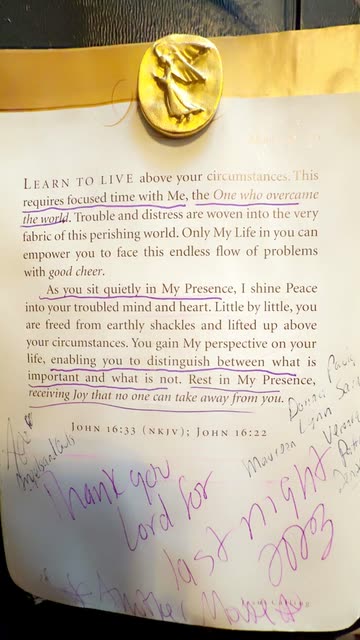 LEARN TO LIVE above your circumstances. This
requires focused time with Me, the One who overcame
the world. Trouble and distress are woven into the very
fabric of this perishing world. Only My Life in you can
empower you to face this endless flow of problems
with good cheer.
As you sit quietly in My Presence, I shine Peace
into your troubled mind and heart. Little by little, you
are freed from earthly shackles and lifted up above
your circumstances. You gain My perspective on your
life, enabling you to distinguish between what is
important and what is not. Rest in My Presence,
receiving Joy that no one can take away from you.
JOHN 16:33 (NKJV); JOHN 16:22
Maureen Lynn
Thank you
Lord for
last night
2023